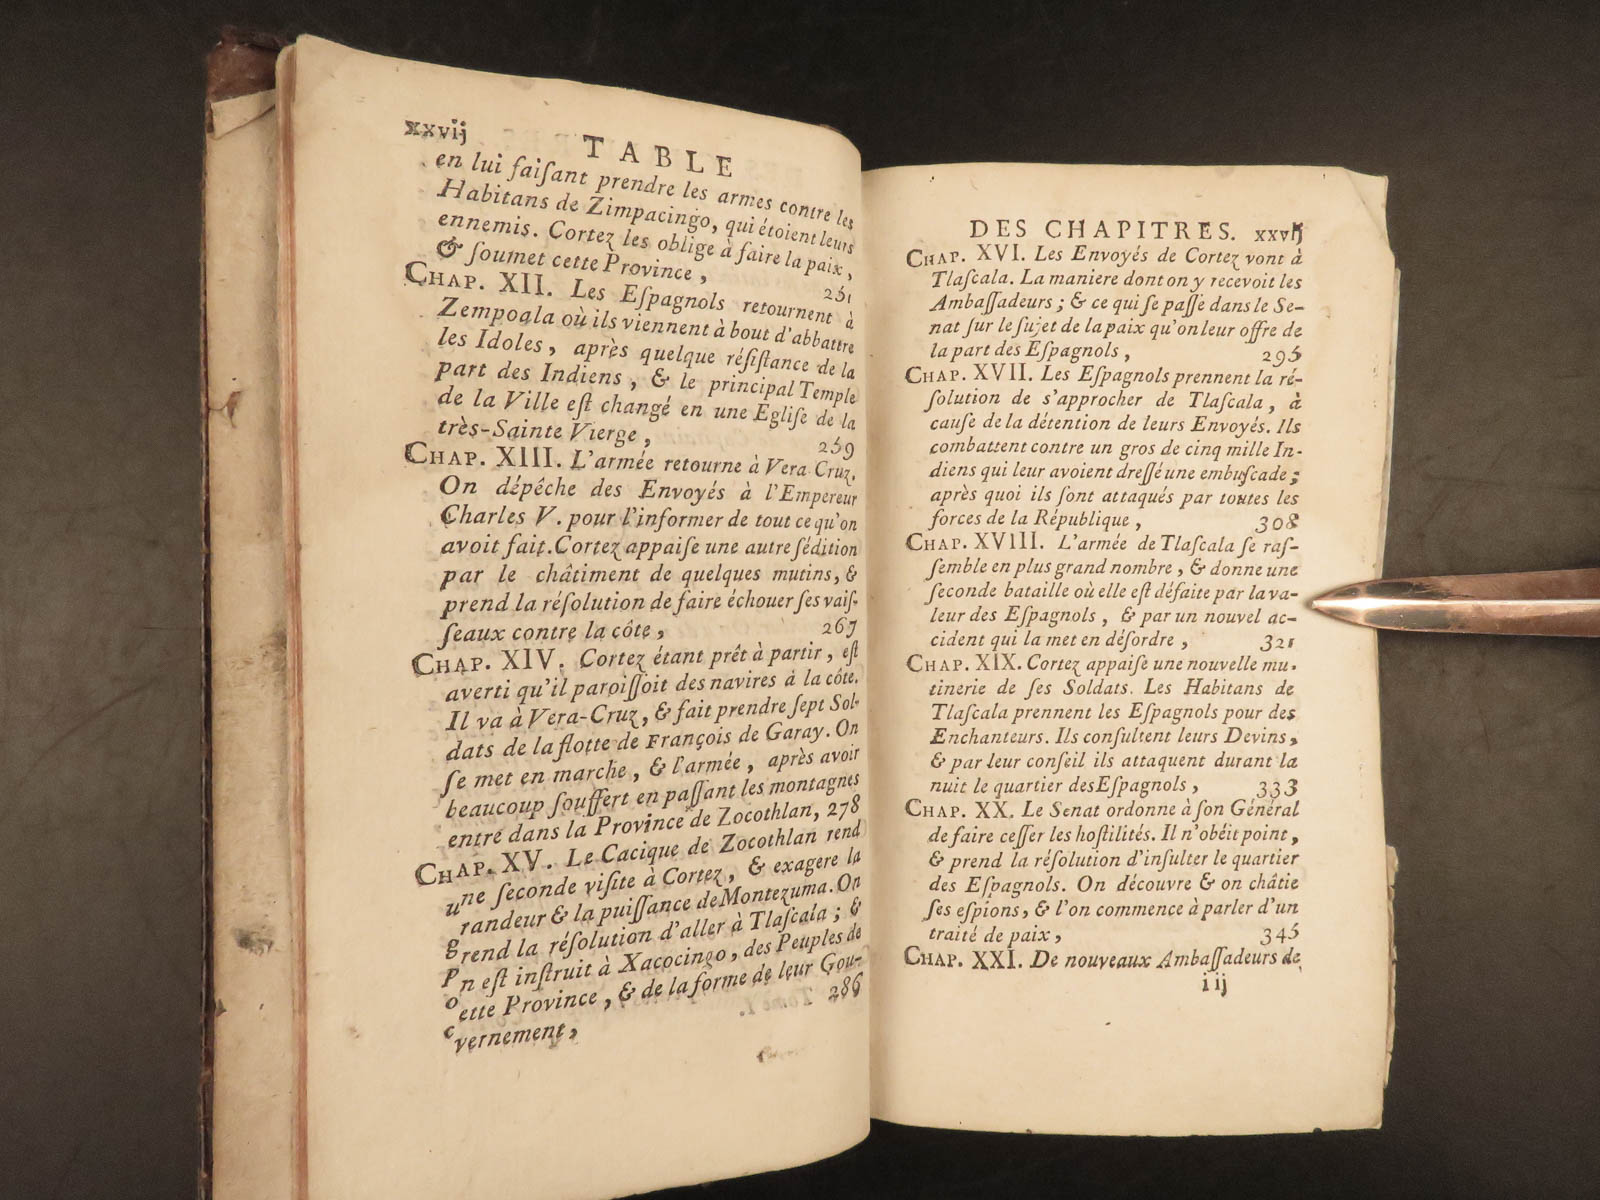 xxvij
TABLE
en lui faiſant prendre les armes contre les
Habitans de Zimpacingo, qui étoient leurs
ennemis. Cortez les oblige à faire la paix,
& ſoumet cette Province, 251
CHAP. XII. Les Eſpagnols retournent à
Zempoala où ils viennent à bout d'abbattre
les Idoles, après quelque réſiſtance de la
part des Indiens, & le principal Temple
de la Ville eſt changé en une Egliſe de la
très-Sainte Vierge, 259
CHAP. XIII. L'armée retourne à Vera Cruz.
On dépêche des Envoyés à l'Empereur
Charles V. pour l'informer de tout ce qu'on
avoit fait. Cortez appaiſe une autre ſédition
par le châtiment de quelques mutins, &
prend la réſolution de faire échouer ſes vaiſ-
ſeaux contre la côte, 267
CHAP. XIV. Cortez étant prêt à partir, eſt
averti qu'il paroiſſoit des navires à la côte.
Il va à Vera-Cruz, & fait prendre ſept Sol-
dats de la flotte de François de Garay. On
ſe met en marche, & l'armée, après avoir
beaucoup ſouffert en paſſant les montagnes
entre dans la Province de Zocothlan, 278
CHAP. XV. Le Cacique de Zocothlan rend
une ſeconde viſite à Cortez, & exagere la
grandeur & la puiſſance de Montezuma. On
prend la réſolution d'aller à Tlaſcala; &
on eſt inſtruit à Xacocingo, des Peuples de
cette Province, & de la forme de leur Gou-
vernement, 286
DES CHAPITRES. xxvij
CHAP. XVI. Les Envoyés de Cortez vont à
Tlaſcala. La maniere dont on y recevoit les
Ambaſſadeurs; & ce qui ſe paſſe dans le Se-
nat ſur le ſujet de la paix qu'on leur offre de
la part des Eſpagnols, 295
CHAP. XVII. Les Eſpagnols prennent la ré-
ſolution de s'approcher de Tlaſcala, à
cauſe de la détention de leurs Envoyés. Ils
combattent contre un gros de cinq mille In-
diens qui leur avoient dreſſé une embuſcade;
après quoi ils ſont attaqués par toutes les
forces de la République, 308
CHAP. XVIII. L'armée de Tlaſcala ſe raſ-
ſemble en plus grand nombre, & donne une
ſeconde bataille où elle eſt défaite par la va-
leur des Eſpagnols, & par un nouvel ac-
cident qui la met en déſordre, 321
CHAP. XIX. Cortez appaiſe une nouvelle mu-
tinerie de ſes Soldats. Les Habitans de
Tlaſcala prennent les Eſpagnols pour des
Enchanteurs. Ils conſultent leurs Devins,
& par leur conſeil ils attaquent durant la
nuit le quartier des Eſpagnols, 333
CHAP. XX. Le Senat ordonne à ſon Général
de faire ceſſer les hoſtilités. Il n'obéit point,
& prend la réſolution d'inſulter le quartier
des Eſpagnols. On découvre & on châtie
ſes eſpions, & l'on commence à parler d'un
traité de paix, 345
CHAP. XXI. De nouveaux Ambaſſadeurs de
iij